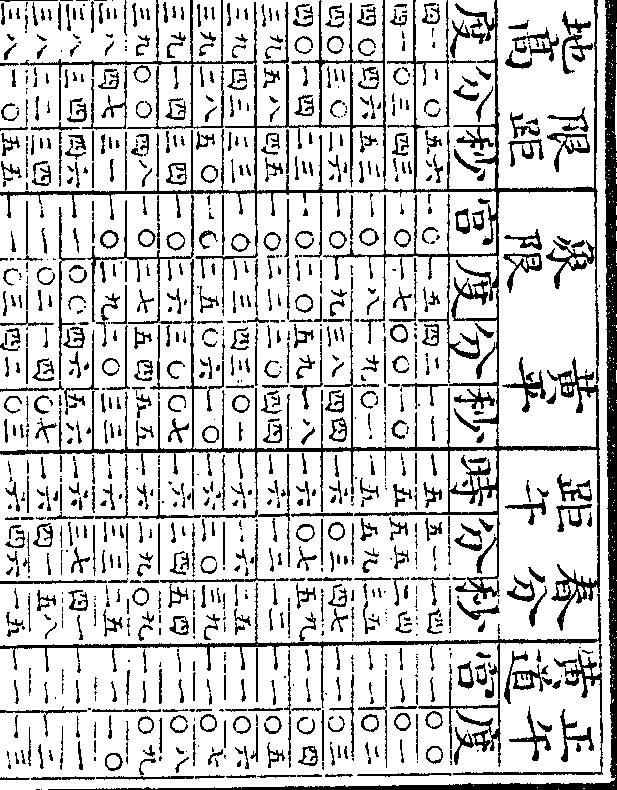 正午黃道 春分距午 黃平象限 限距地高
宮 度 時 分 秒 宮 度 分 秒 度 分 秒
一一 〇〇 一五 五一 一四 一〇 一五 四二 一一 四一 二〇 五六
一一 〇一 一五 五五 二四 一〇 一七 〇〇 一〇 四一 〇三 四三
一一 〇二 一五 五九 三五 一〇 一八 一九 〇一 四〇 四六 五三
一一 〇三 一六 〇三 四七 一〇 一九 三八 四四 四〇 三〇 二六
一一 〇四 一六 〇七 五九 一〇 二〇 五九 一八 四〇 一四 二三
一一 〇五 一六 一二 一二 一〇 二二 二〇 四四 三九 五八 四五
一一 〇六 一六 一六 二五 一〇 二三 四三 〇一 三九 四三 三三
一一 〇七 一六 二〇 三九 一〇 二五 〇六 一〇 三九 二八 五〇
一一 〇八 一六 二四 五四 一〇 二六 三〇 〇七 三九 一四 三四
一一 〇九 一六 二九 〇九 一〇 二七 五四 五五 三九 〇〇 四八
一一 一〇 一六 三三 二五 一〇 二九 二〇 三三 三八 四七 三一
一一 一一 一六 三七 四一 一一 〇〇 四六 五六 三八 三四 四六
一一 一二 一六 四一 五八 一一 〇二 一四 〇七 三八 二二 三四
一一 一三 一六 四六 一五 一一 〇三 四二 〇三 三八 一〇 五五